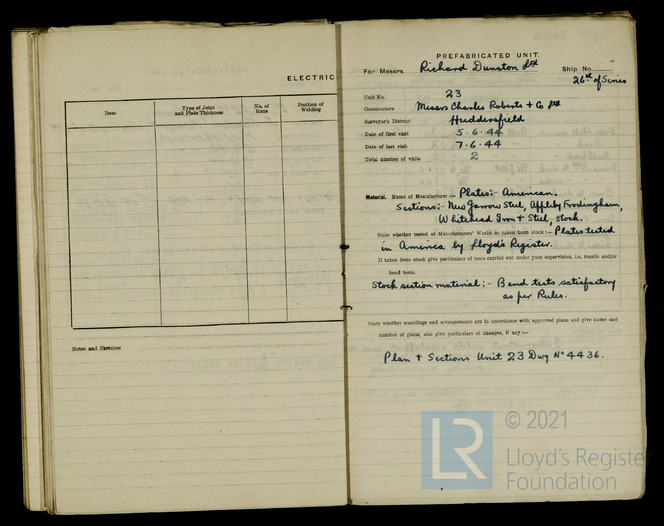 ELECTRIC
Item
Type of Joint
and Plate Thickness
No. of
Runs
Position of
Welding
Notes and Sketches
PREFABRICATED UNIT.
For Messrs Richard Dunston Ltd Ship No
26th of Series
Unit No. 23
Constructors Messrs Charles Roberts & Co Ltd
Surveyor's District Huddersfield
Date of first visit 5.6.44
Date of last visit 7.6.44
Total number of visits 2
Material. Name of Manufacturer:- Plates:- American.
Sections:- New Jarrow Steel, Appleby Frodingham,
Whitehead Iron & Steel, Stock.
State whether tested at Manufacturers' Works or taken from stock:- Plates tested
in America by Lloyd's Register.
If taken from stock give particulars of tests carried out under your supervision, i.e. tensile and/or
bend tests.
Stock section material:- Bend tests satisfactory
as per Rules.
State whether scantlings and arrangements are in accordance with approved plans and give name and
number of plans, also give particulars of changes, if any:-
Plan & Sections Unit 23 Dwg No 4436.
LR © 2021
Lloyd's Register
Foundation